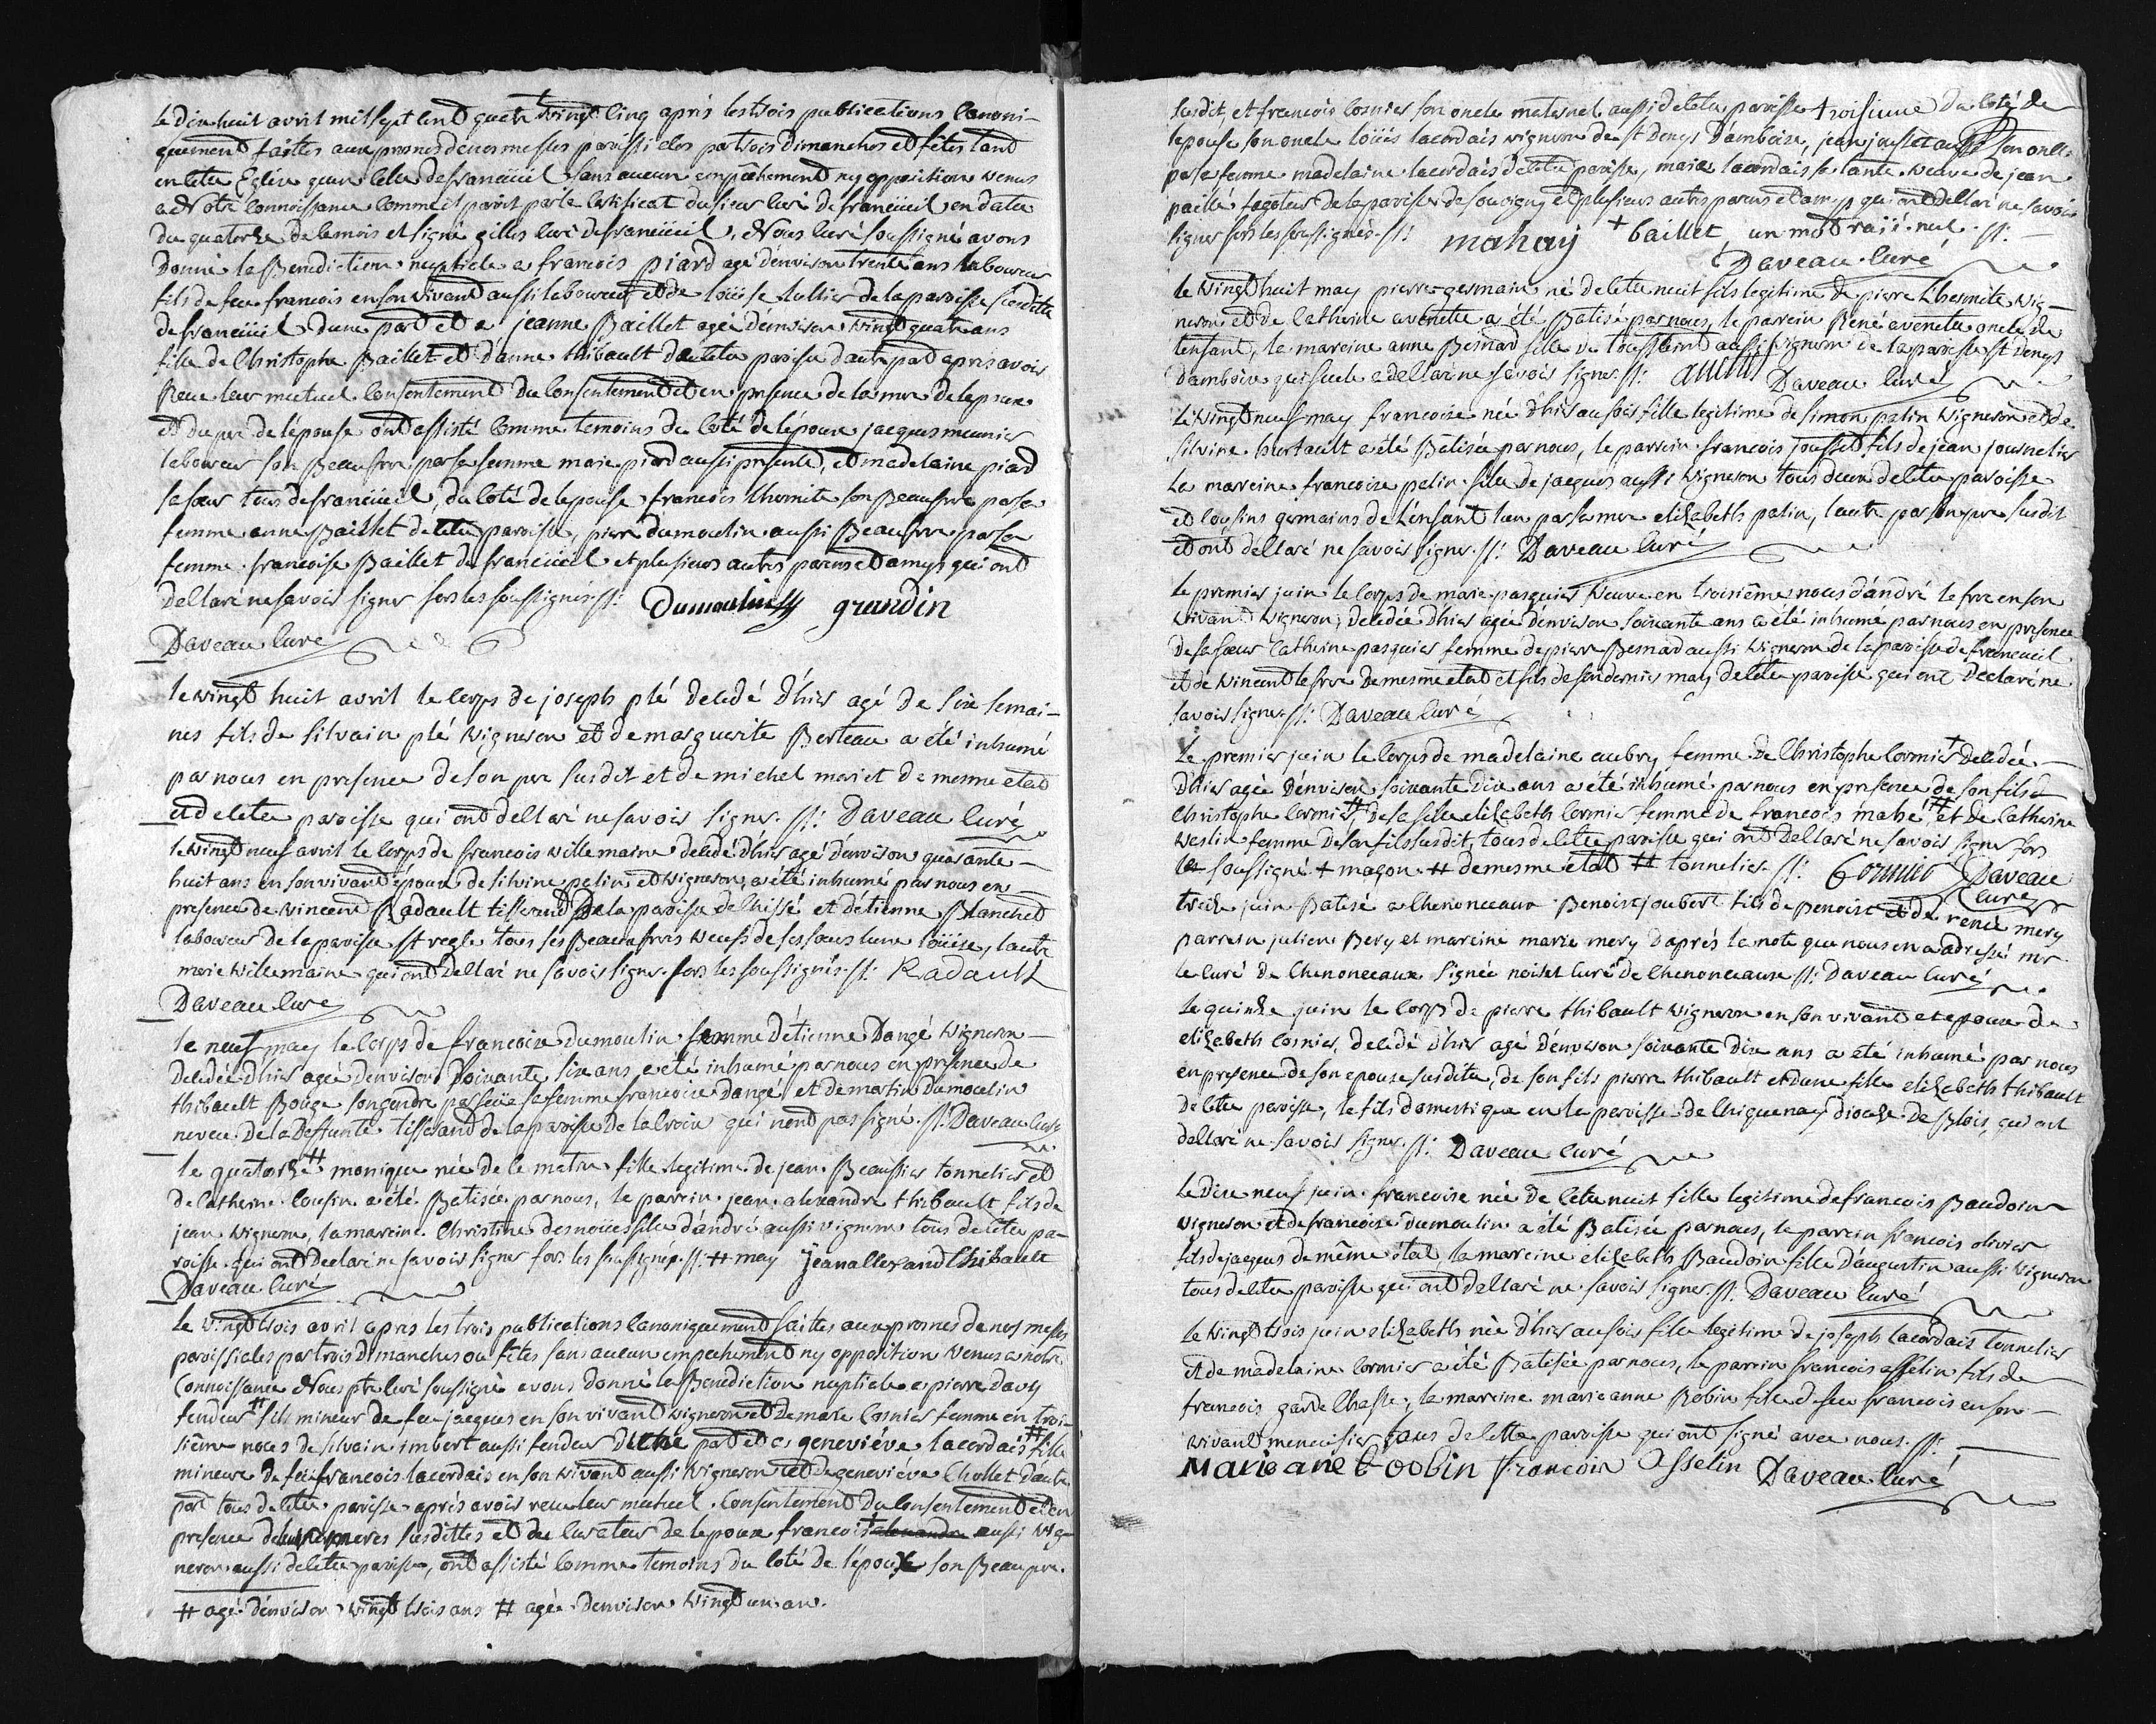 Le dix huit avril mil sept cent quatre vingt cinq après les trois publications canoni-
quement faites aux prosnes de nos messes paroissiales par trois dimanches et fêtes tant
en cette Eglise qu'en celle de francüeil sans aucun empêchement ny opposition venus
a Notre connoissance comme il paroit par le certificat du sieur curé de francüeil en date
du quatorze de ce mois et signé gilles curé de francüeil, Nous curé soussigné avons
Donné la Benediction nuptiale a francois piard agé d'environ trente ans laboureur
fils de feu francois en son vivant aussi laboureur et de loüise lullier de la paroisse susditte
de francüeil d'une part et a jeanne Baillet agée d'environ vingt quatre ans
fille de Christophe Baillet et d'anne thibault de cette paroisse d'autre part après avoir
Receu leur mutuel consentement du consentement et en presence de la mere de l'epoux
et du pere de l'épouse ont assisté comme temoins du coté de l'époux jacques meunier
laboureur son Beaufrere par sa femme marie piard aussi presente, et madelaine piard
sa sœur tous de francüeil, du coté de l'epouse francois lhermite son Beaufrere par sa
femme anne Baillet de cette paroisse, pierre dumoulin aussi Beaufrere par sa
femme francoise Baillet de francüeil et plusieurs autres parens et amys qui ont
declaré ne savoir signer fors les soussignés. //: Dumoulin grandin
Daveau curé
le vingt huit avril le corps de joseph plé decedé d'hier agé de six semai-
nes fils de silvain plé vigneron et de marguerite Berteau a été inhumé
par nous en presence de son pere susdit et de michel moriet de mesme etat
et de cette paroisse qui ont declaré ne savoir signer. //: Daveau curé
le vingt neuf avril le corps de francois willemaine decedé d'hier agé d'environ quarante-
huit ans en son vivant époux de silvine pelin et vigneron, a été inhumé par nous en
presence de vincent Radault tisserand de la paroisse de chissé et d'étienne Blanchet
laboureur de la paroisse st regle tous ses Beauxfrers veufs de ses sœurs l'une loüise, l'autre
marie willemaine qui ont declaré ne savoir signer fors les soussignés. //: Radault
Daveau curé
le neuf may le corps de francoise dumoulin femme d'étienne Dangé vigneron
decedée d'hier agée d'environ soixante six ans a été inhumé par nous en presence de
thibault Bouge son gendre par feüe sa femme francoise dangé et de martin Dumoulin
neveu de la Deffunte tisserand de la paroisse de la croix qui n'ont pas signé. //: Daveau curé
le quatorze # monique née de ce matin fille legitime de jean Beaussier tonnelier et
de Catherine Cousin a été Batisée par nous, le parrein jean alexandre thibault fils de
jean vigneron, la mareine Christine desnoües fille d'andré aussi vigneron tous de cette pa-
roisse qui ont declaré ne savoir signer fors les soussignés. //: # may jean allexand thibault
Daveau curé
Le vingt trois avril après les trois publications canoniquement faites aux prosnes de nos messes
paroissiales par trois dimanches ou fêtes sans aucun empechement ny opposition venus a notre
Connoissance Nous ptre curé soussigné avons donné la Benediction nuptiale a pierre davy
fendeur # fils mineur de feu jacques en son vivant vigneron et de marie Cosnier femme en troi-
sième noces de silvain imbert aussi fendeur d'une part et a geneviéve lacordais # fille
mineure de feu francois lacordais en son vivant aussi vigneron et de geneviéve Chollet d'autre
part tous de cette paroisse après avoir receu leur mutuel consentement du consentement et en
presence de leurs meres susdittes et du curateur de lepoux francois aussi vig-
neron aussi de cette paroisse, ont assisté comme temoins du coté de l'époux son Beau pere
# agé d'environ vingt trois ans # agée d'environ vingt un an.
susdit, et francois Cosnier son oncle maternel aussi de cette paroisse + troisieme du coté de
lepouse son oncle loüis lacordais vigneron de st Denys D'amboise, jean jousset aussi son oncle
par sa femme madelaine lacordais de cette paroisse, marie lacordais sa tante veuve de jean
paillé fagoteur de la paroisse de souvigny et plusieurs autres parens et amys qui ont declaré ne savoir
signer fors les soussignés. //: mahay + baillet un mot raïé nul. //.
Daveau curé
le vingt huit may pierre germain né de cette nuit fils legitime de pierre Lhermite vig-
neron et de Catherine avenette a été Batisé par nous, le parrein René avenette oncle de
l'enfant, la mareine anne Besnard fille de toussaint aussi vigneron de la paroisse st denys
d'amboise qui seule a declaré ne savoir signer. //: Daveau curé
Le vingt neuf may francoise née d'hier au soir fille legitime de simon patin vigneron et de
silvine hurtault a été Batisée par nous, le parrein francois jousset fils de jean journelier
La mareine francoise patin fille de jacques aussi vigneron tous deux de cette paroisse
et cousins germains de l'enfant l'un par sa mere elizabeth patin, l'autre par son pere susdit
et ont declaré ne savoir signer. //: Daveau curé
le premier juin le corps de marie pasquier veuve en troisième noces d'andré lefrere en son
vivant vigneron, decedée d'hier agée d'environ soixante ans a été inhumé par nous en presence
de sa sœur Catherine pasquier femme de pierre Besnard aussi vigneron de la paroisse de francueil
et de vincent lefrere de mesme etat et fils de son dernier mary de cette paroisse qui ont declaré ne
savoir signer. //: Daveau curé
Le premier juin le corps de madelaine aubry femme de Christophe Cormier + decedée
d'hier agée d'environ soixante dix ans a été inhumé par nous en presence de son fils
Christophe Cormier #, de sa fille elizabeth Cormier femme de francois mahé #, et de Catherine
weslin femme de son fils susdit, tous de cette paroisse qui ont declaré ne savoir signer fors
le soussigné + maçon # de mesme état # tonnelier. //: Cormier Daveau
curé
treize juin Batisé a Chenonceaux Benoist joubert fils de Benoist et de renée mery
parrein julien Bery et mareine marie mery d'aprés la note que nous en a adressé mr
le curé de Chenonceaux signée noiset curé de Chenonceaux //: Daveau curé
Le quinze juin le corps de pierre thibault vigneron en son vivant et epoux de
elizabeth Cosnier, decedé d'hier agé d'environ soixante dix ans a été inhumé par nous
en presence de son epouse susditte, de son fils pierre thibault et d'une fille elizabeth thibault
de cette paroisse, le fils domestique en la paroisse de Chiguenay diocèse de Blois, qui ont
declaré ne savoir signer. //: Daveau curé
Le dix neuf juin francoise née de cette nuit fille legitime de francois Baudoin
vigneron et de francoise Dumoulin a été Batisée par nous, le parrein francois olivier
fils de jacques de même état, la mareine elizabeth Baudoin fille d'augustin aussi vigneron
tous de cette paroisse qui ont declaré ne savoir signer. //: Daveau curé
le vingt trois juin elizabeth née d'hier au soir fille legitime de joseph Lacordais tonnelier
et de madelaine Cormier a été Batisée par nous, le parein francois asselin fils de
francois garde Chasse, la mareine marie anne Robin fille de feu francois en son
vivant menuisier tous de cette paroisse qui ont signé avec nous. //:
Marie ane Robin francois Asselin Daveau curé